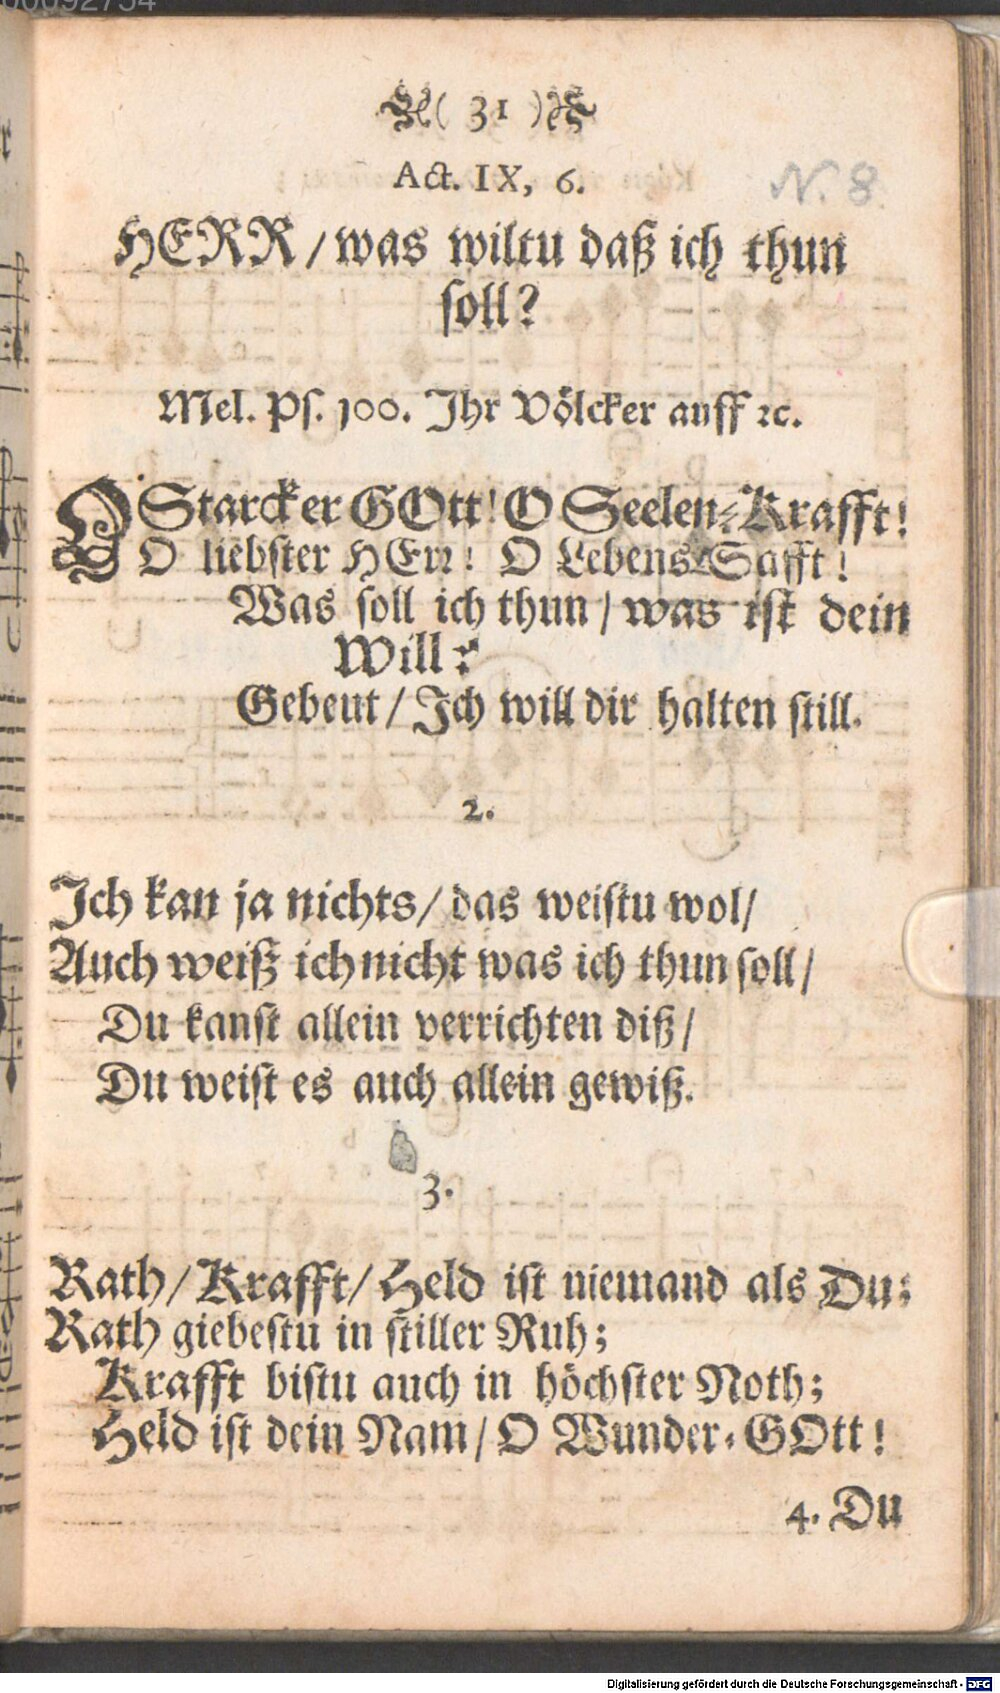 00092754
( 31 )
Act. IX, 6.
N. 8.
HERR / was wiltu daß ich thun
soll?
Mel. Ps. 100. Ihr Völcker auff ꝛc.
O Starcker GOtt! O Seelen-Krafft!
O liebster HErr! O Lebens-Safft!
Was soll ich thun / was ist dein
Will?
Gebeut / Ich will dir halten still.
2.
Ich kan ja nichts / das weistu wol /
Auch weiß ich nicht was ich thun soll /
Du kanst allein verrichten diß /
Du weist es auch allein gewiß.
3.
Rath / Krafft / Held ist niemand als Du;
Rath giebestu in stiller Ruh;
Krafft bistu auch in höchster Noth;
Held ist dein Nam / O Wunder-GOtt!
4. Du
Digitalisierung gefördert durch die Deutsche Forschungsgemeinschaft - DFG